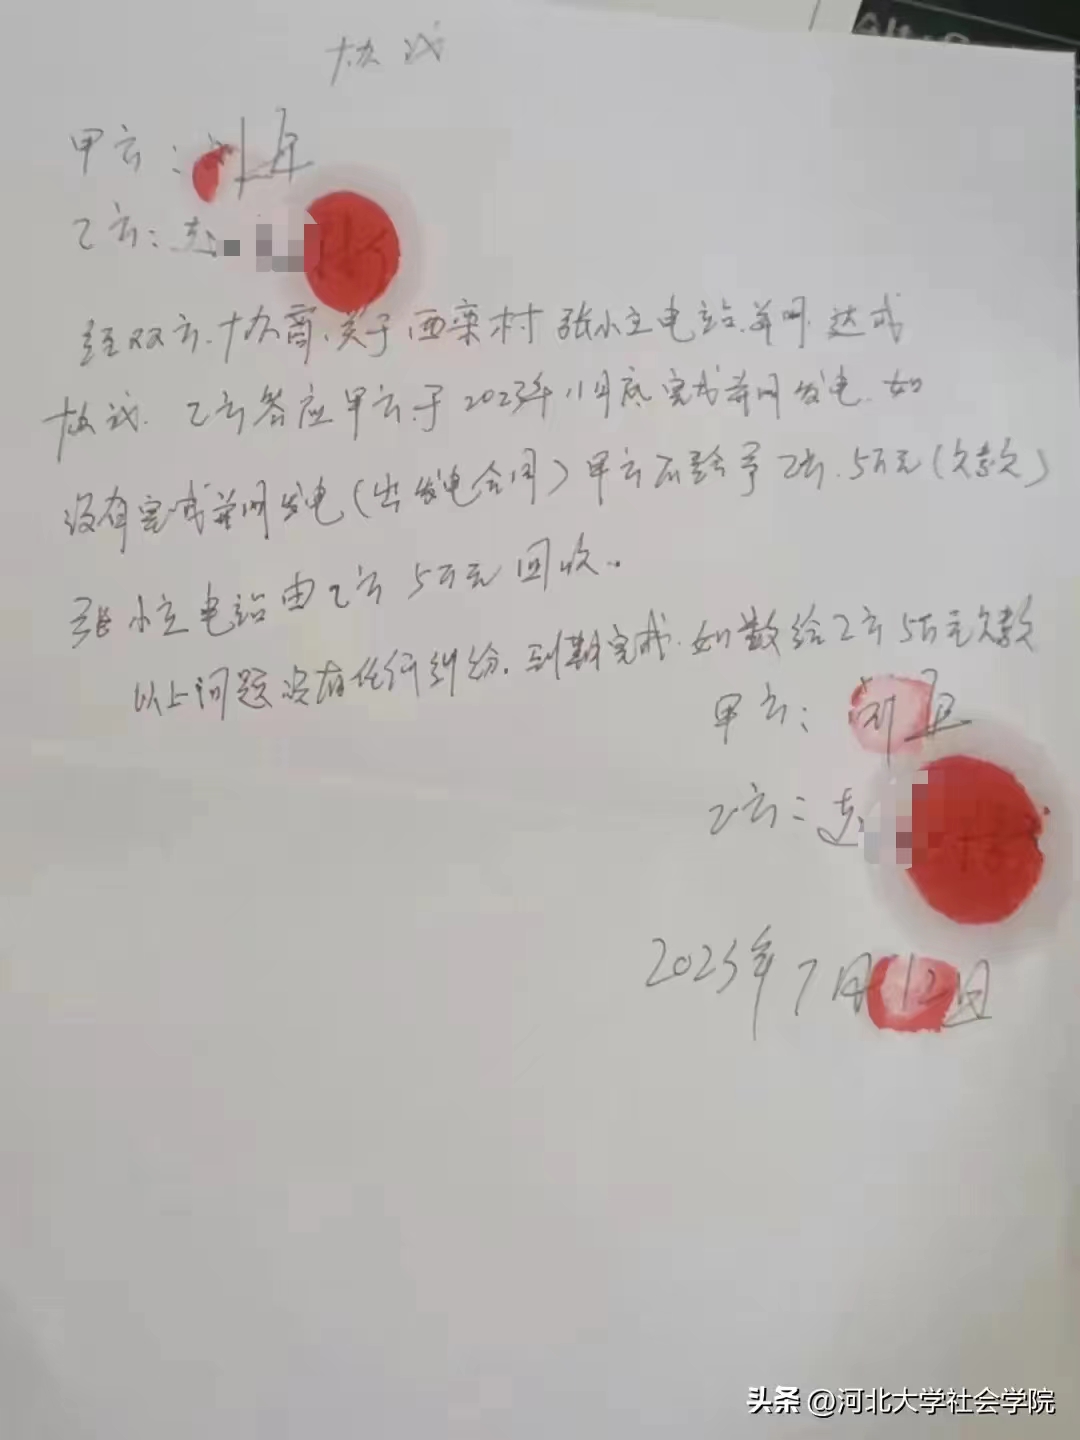 协议
甲方：刘
乙方：赵
经双方.协商.关于西栾村张小立电站.并网.达成
协议.乙方答应甲方.于2023年11月底完成并网发电.如
没有完成并网发电(出发电合同)甲方不给予乙方.5万元(欠款)
张小立电站由乙方5万元回收..
以上问题没有任何纠纷.到期完成.如数给乙方5万元欠款
甲方：刘
乙方：赵
2023年7月12日
头条 @河北大学社会学院